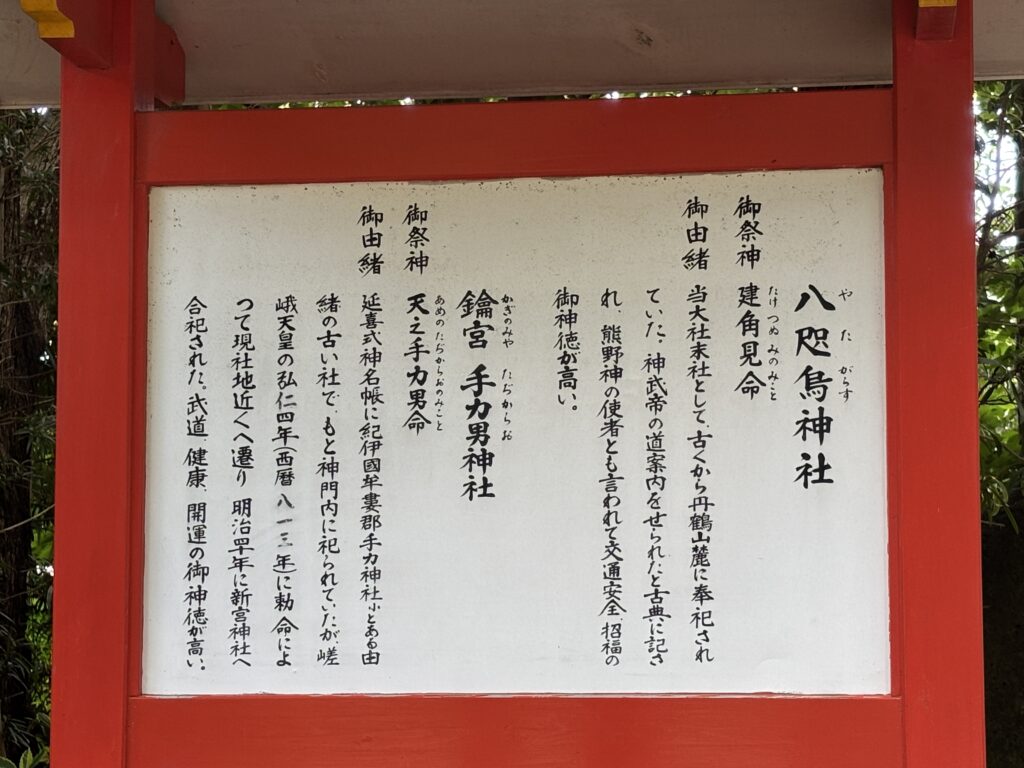 八咫烏神社
やたがらす
御祭神 建角見命
たけつぬみのみこと
御由緒 当大社末社として、古くから丹鶴山麓に奉祀され
ていた。神武帝の道案内をせられたと古典に記さ
れ、熊野神の使者とも言われて交通安全、招福の
御神徳が高い。
鑰宮 手力男神社
かぎのみや たぢからお
御祭神 天之手力男命
あめのたぢからおのみこと
御由緒 延喜式神名帳に紀伊國牟婁郡手力神社小とある由
緒の古い社で、もと神門内に祀られていたが嵯
峨天皇の弘仁四年(西暦八一三年)に勅命によ
つて現社地近くへ遷り 明治四十年に新宮神社へ
合祀された。武道、健康、開運の御神徳が高い。